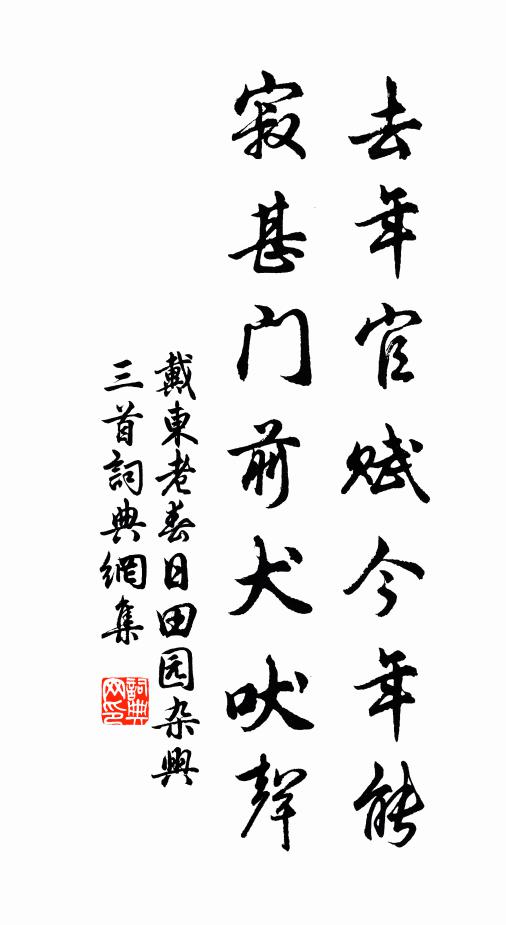 去年官赋今年能
寂甚门前犬吠聲
戴東老春日田园杂興
三首詞典網集
詞典网印